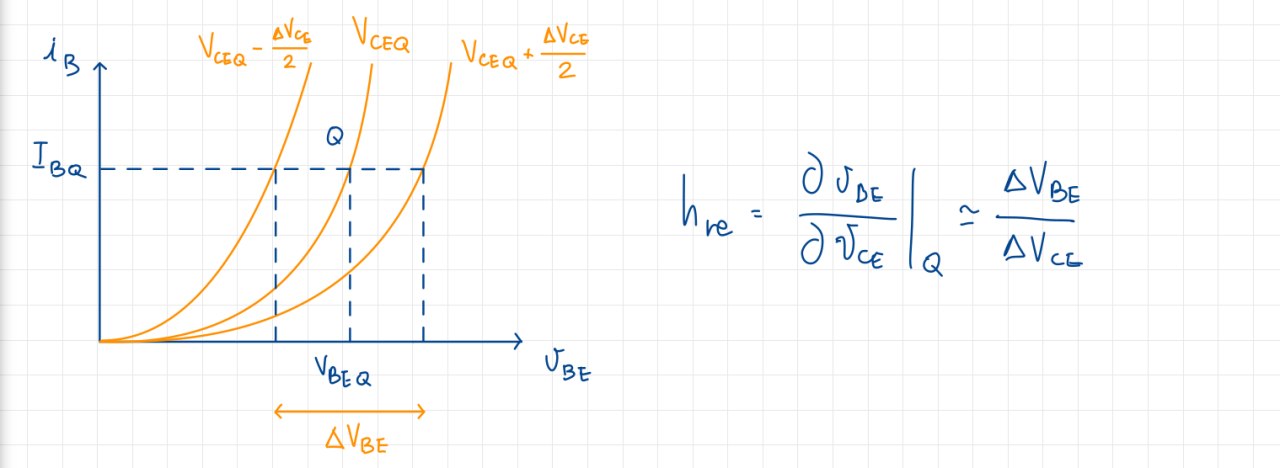 i_B
V_CEQ - ΔV_CE/2
V_CEQ
V_CEQ + ΔV_CE/2
Q
I_BQ
V_BEQ
v_BE
ΔV_BE
h_re = ∂v_BE/∂v_CE |_Q ≃ ΔV_BE/ΔV_CE